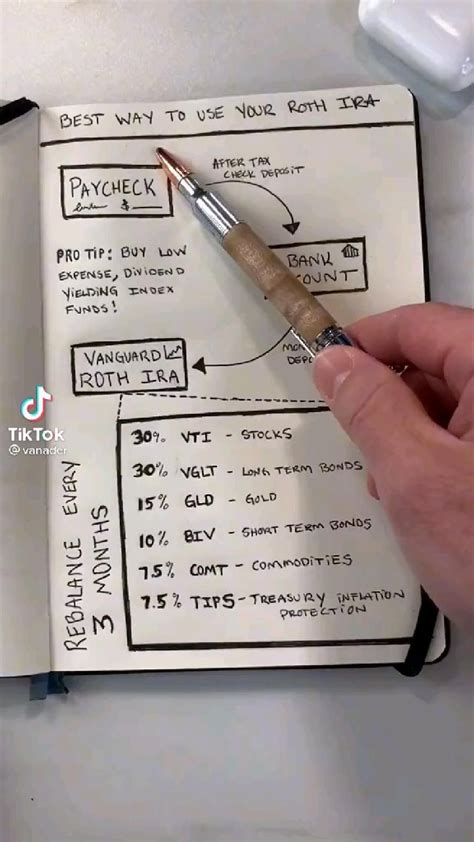 BEST WAY TO USE YOUR ROTH IRA
PAYCHECK
$
AFTER TAX
CHECK DEPOSIT
PRO TIP: BUY LOW
EXPENSE, DIVIDEND
YIELDING INDEX
FUNDS!
BANK
COUNT
VANGUARD
ROTH IRA
TikTok
@vanadcr
REBALANCE EVERY
3 MONTHS
30% VTI - STOCKS
30% VGLT - LONG TERM BONDS
15% GLD - GOLD
10% BIV - SHORT TERM BONDS
7.5% COMT - COMMODITIES
7.5% TIPS - TREASURY INFLATION
PROTECTION